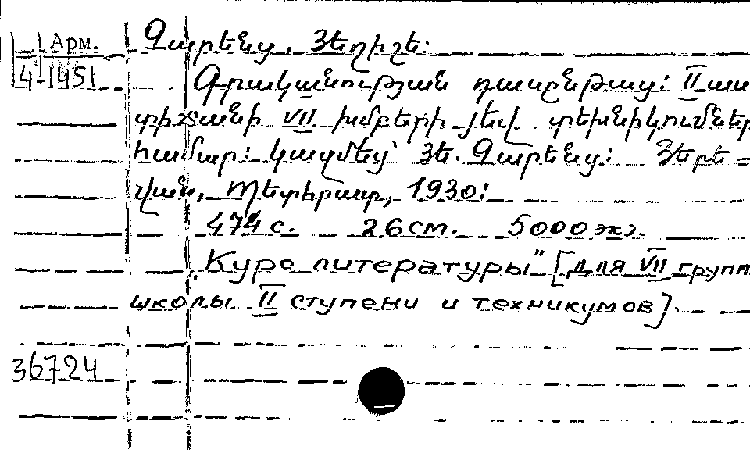 Арм.
4-1451
Չարենց, Յեղիշե։
Գրականության դասընթաց։ II աս
տիճանի VII խմբերի յեվ տեխնիկումներ
համար։ կազմեց՝ Յե. Չարենց։ Յերե=
վան, Պետհրատ, 1930։
474 с. 26 cm. 5000 экз.
„Курс литературы" [для VII групп
школы II ступени и техникумов].
36724